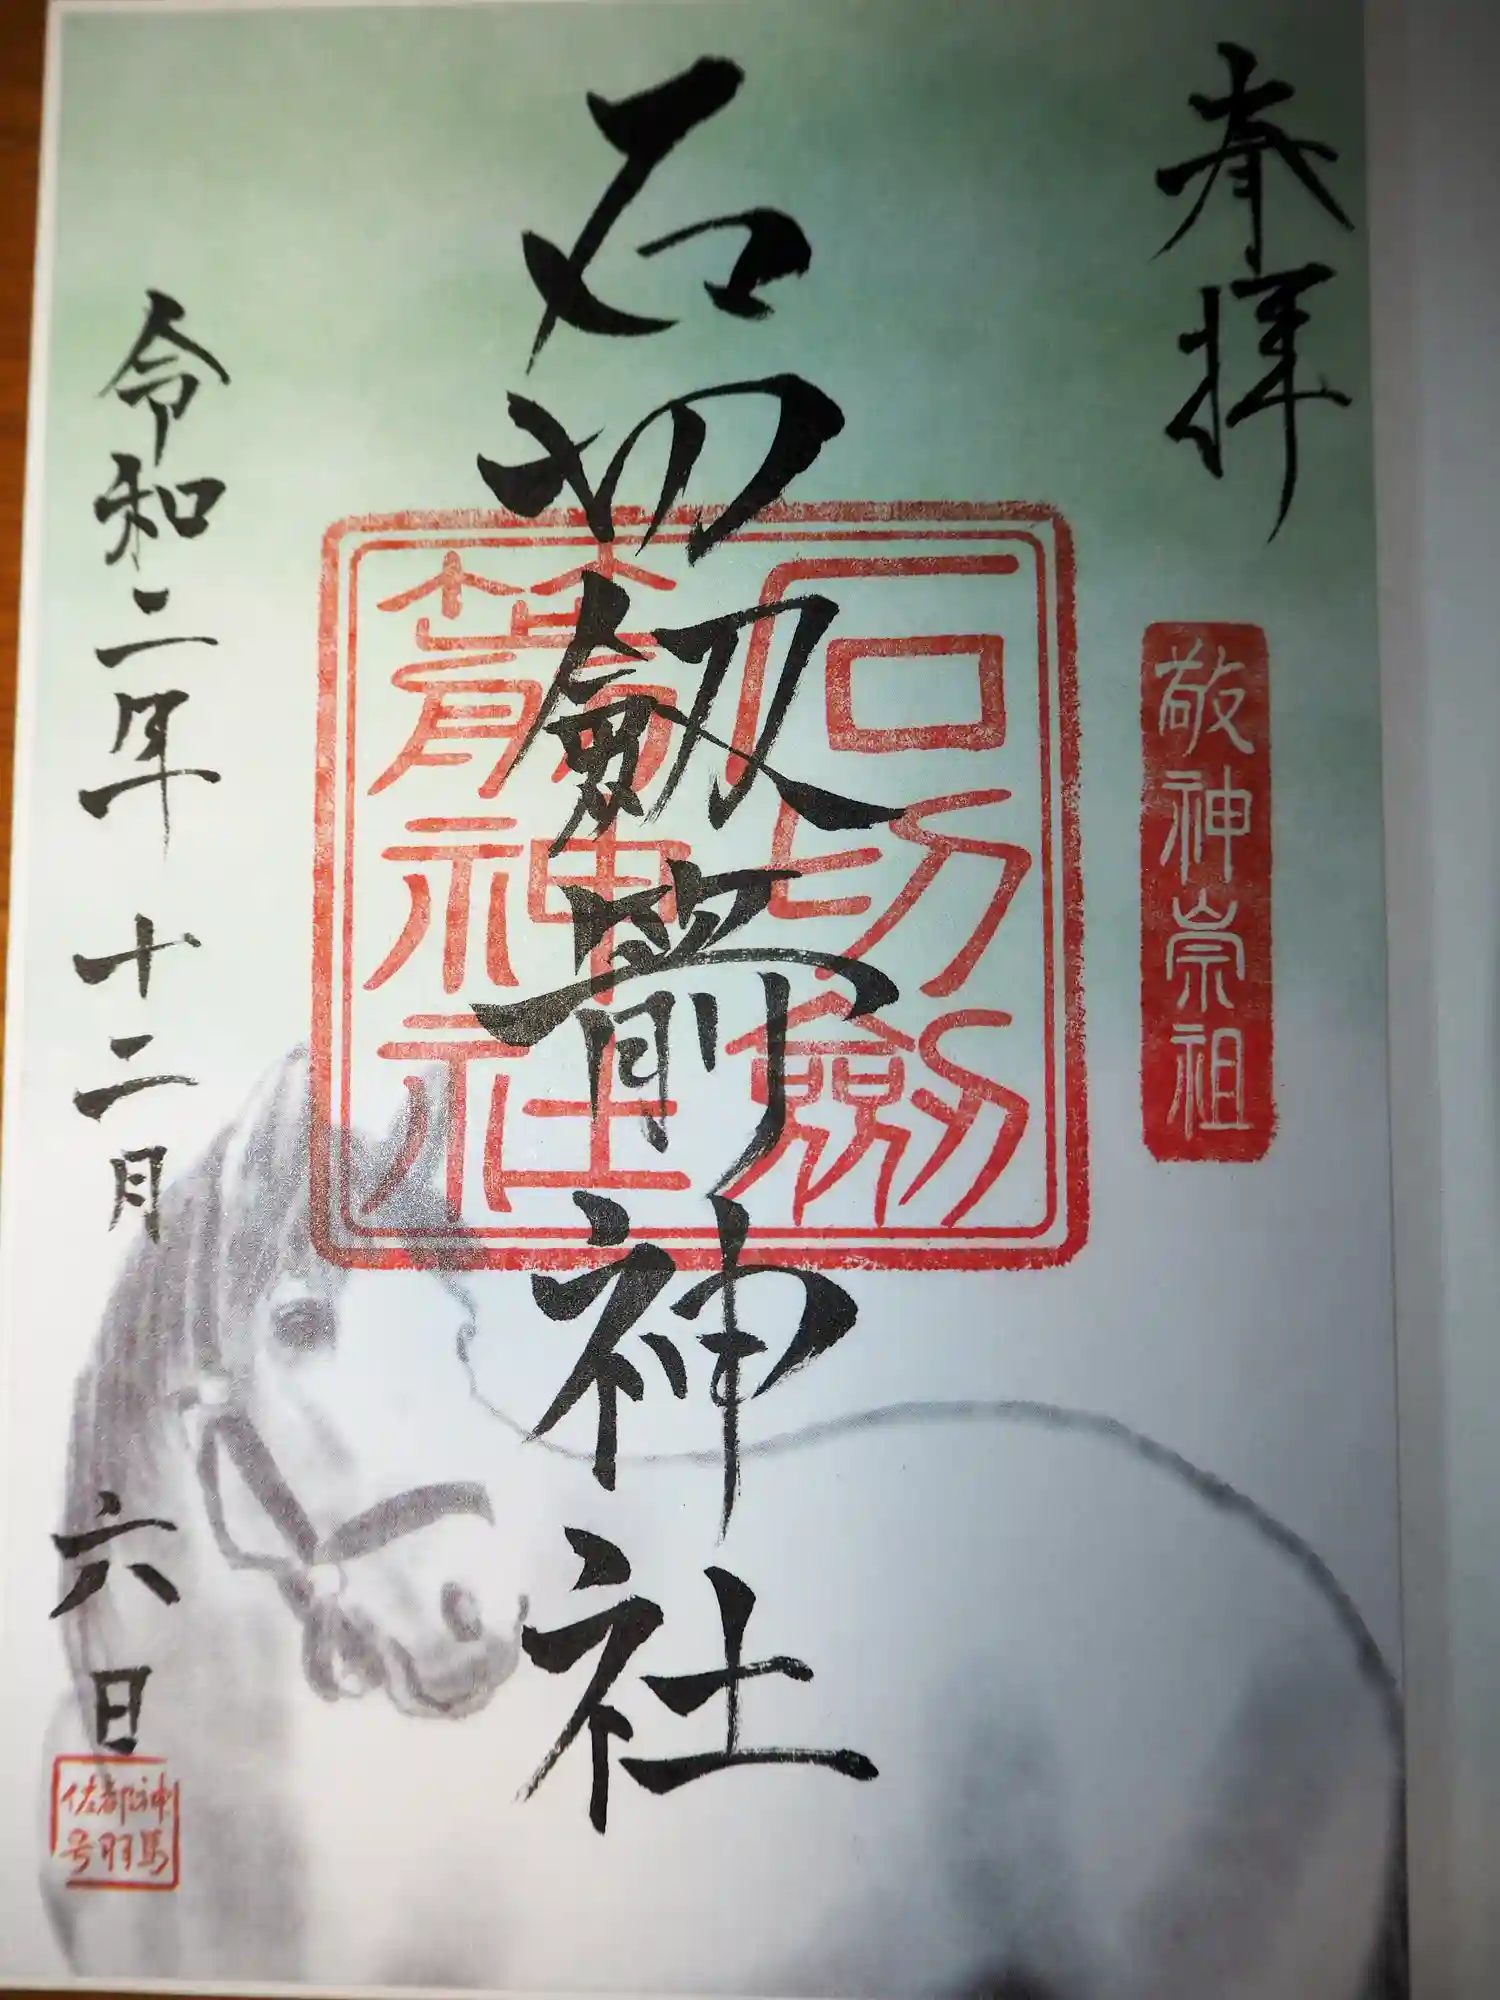 奉拝
敬神崇祖
石切劔箭神社
石切劔
箭神社
令和二年十二月六日
神馬
都羽
佐号